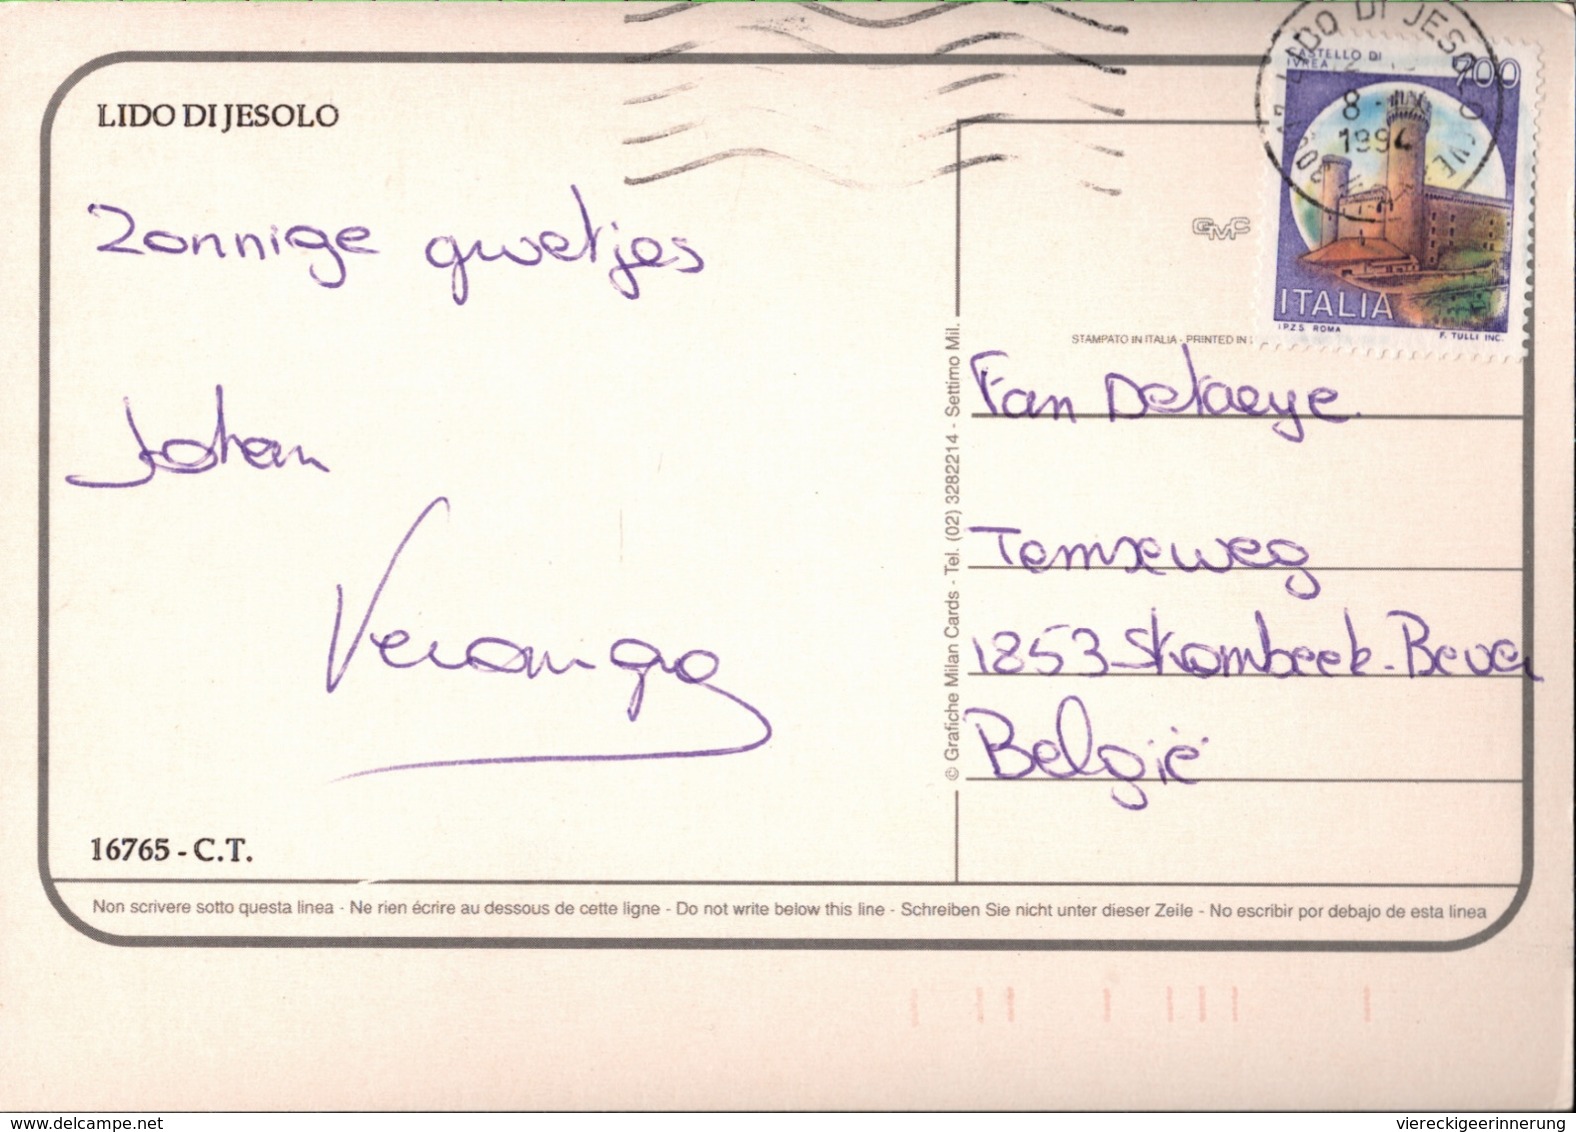 LIDO DI JESOLO
Zonnige groetjes
Johan
LIDO DI JESOLO
8
1994
CASTELLO DI
IVREA
700
ITALIA
I.P.Z.S. ROMA
F. TULLI INC.
GMC
STAMPATO IN ITALIA - PRINTED IN
Fam Dekaeye.
Temseweg
1853 Strombeek-Bever
België
© Grafiche Milan Cards - Tel. (02) 3282214 - Settimo Mil.
16765 - C.T.
Non scrivere sotto questa linea - Ne rien écrire au dessous de cette ligne - Do not write below this line - Schreiben Sie nicht unter dieser Zeile - No escribir por debajo de esta linea
delcampe.net
viereckigeerinnerung